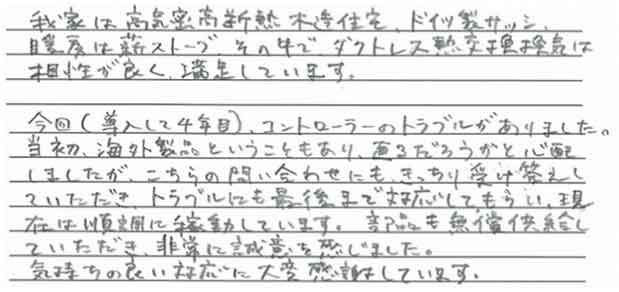 我家は高気密高断熱木造住宅、ドイツ製サッシ、
暖房は薪ストーブ、その中で、ダクトレス熱交換換気は
相性が良く、満足しています。
今回(導入して4年目)、コントローラーのトラブルがありました。
当初、海外製品ということもあり、直るだろうかと心配
しましたが、こちらの問い合わせにも、きっちり受け答えし
ていただき、トラブルにも最後まで対応してもらい、現
在は順調に稼動しています。部品も無償供給し
ていただき、非常に誠意を感じました。
気持ちの良い対応に大変感謝しています。